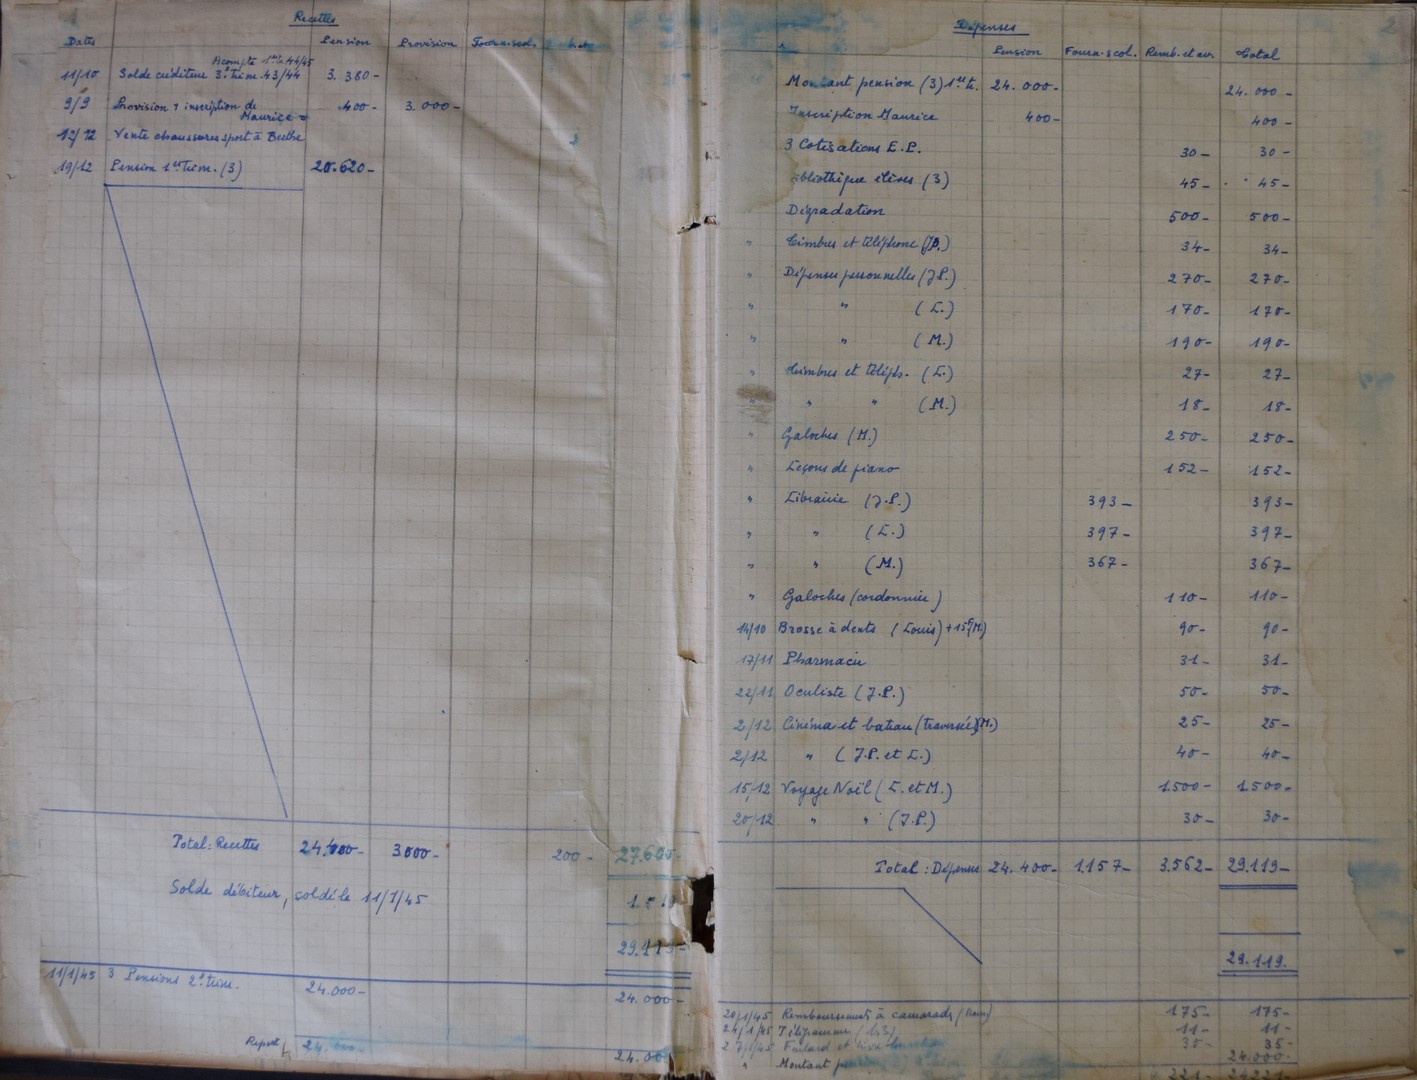 Recettes
Dates Pension Provision Fourn. scol.
Acompte 1er tr. 44/45
11/10 Solde créditeur 3e trim. 43/44 3.380-
9/9 Provision + inscription de 400- 3.000-
Maurice
12/12 Vente chaussures sport à Berthe
19/12 Pension 1er trim. (3) 20.620-
Total: Recettes 3000- 200-
Solde débiteur, soldé le 11/1/45
29.119-
11/1/45 3 Pensions 2e trim. 24.000- 24.000-
Report
Dépenses
Pension Fourn. scol. Remb. et av. Total
Montant pension (3) 1er tr. 24.000- 24.000-
Inscription Maurice 400- 400-
3 Cotisations E.P. 30- 30-
Bibliothèque élèves (3) 45- 45-
Dégradation 500- 500-
" Timbres et téléphone (J.P.) 34- 34-
" Dépenses personnelles (J.P.) 270- 270-
" " (L.) 170- 170-
" " (M.) 190- 190-
" Timbres et téléph. (L.) 27- 27-
" " " (M.) 18- 18-
" Galoches (M.) 250- 250-
" Leçons de piano 152- 152-
" Librairie (J.P.) 393- 393-
" " (L.) 397- 397-
" " (M.) 367- 367-
" Galoches (cordonnier) 110- 110-
14/10 Brosse à dents (Louis) + 15f (M.) 90- 90-
17/11 Pharmacie 31- 31-
22/11 Oculiste (J.P.) 50- 50-
2/12 Cinéma et bateau (traversée) (M.) 25- 25-
2/12 " (J.P. et L.) 40- 40-
15/12 Voyage Noël (L. et M.) 1.500- 1.500-
20/12 " " (J.P.) 30- 30-
Total: Dépenses 24.400- 1.157- 3.562- 29.119-
29.119.
20/1/45 Remboursement à camarade 175- 175-
24/1/45 Télégramme 11- 11-
35-
24.000-
" Montant